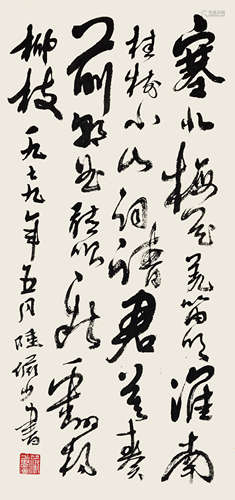 塞北梅花羌笛吹淮南
桂树小山词请君莫奏
前朝曲听唱新翻杨
柳枝一九七九年五月陆俨少书